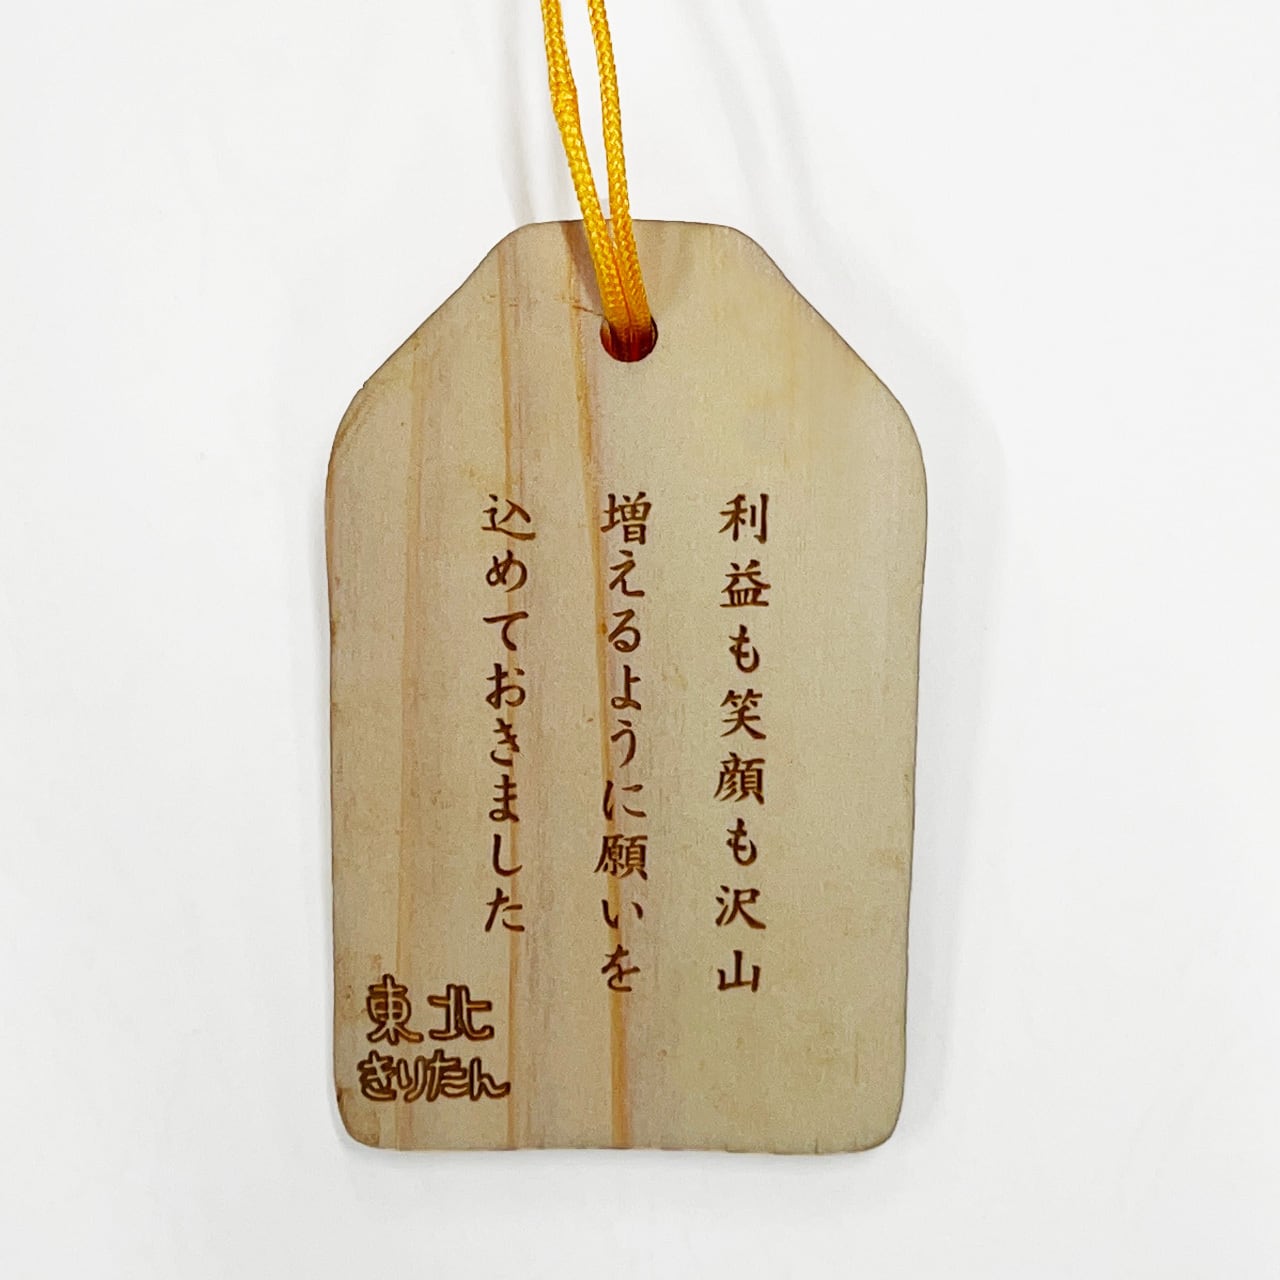 利益も笑顔も沢山
増えるように願いを
込めておきました
東北
きりたん